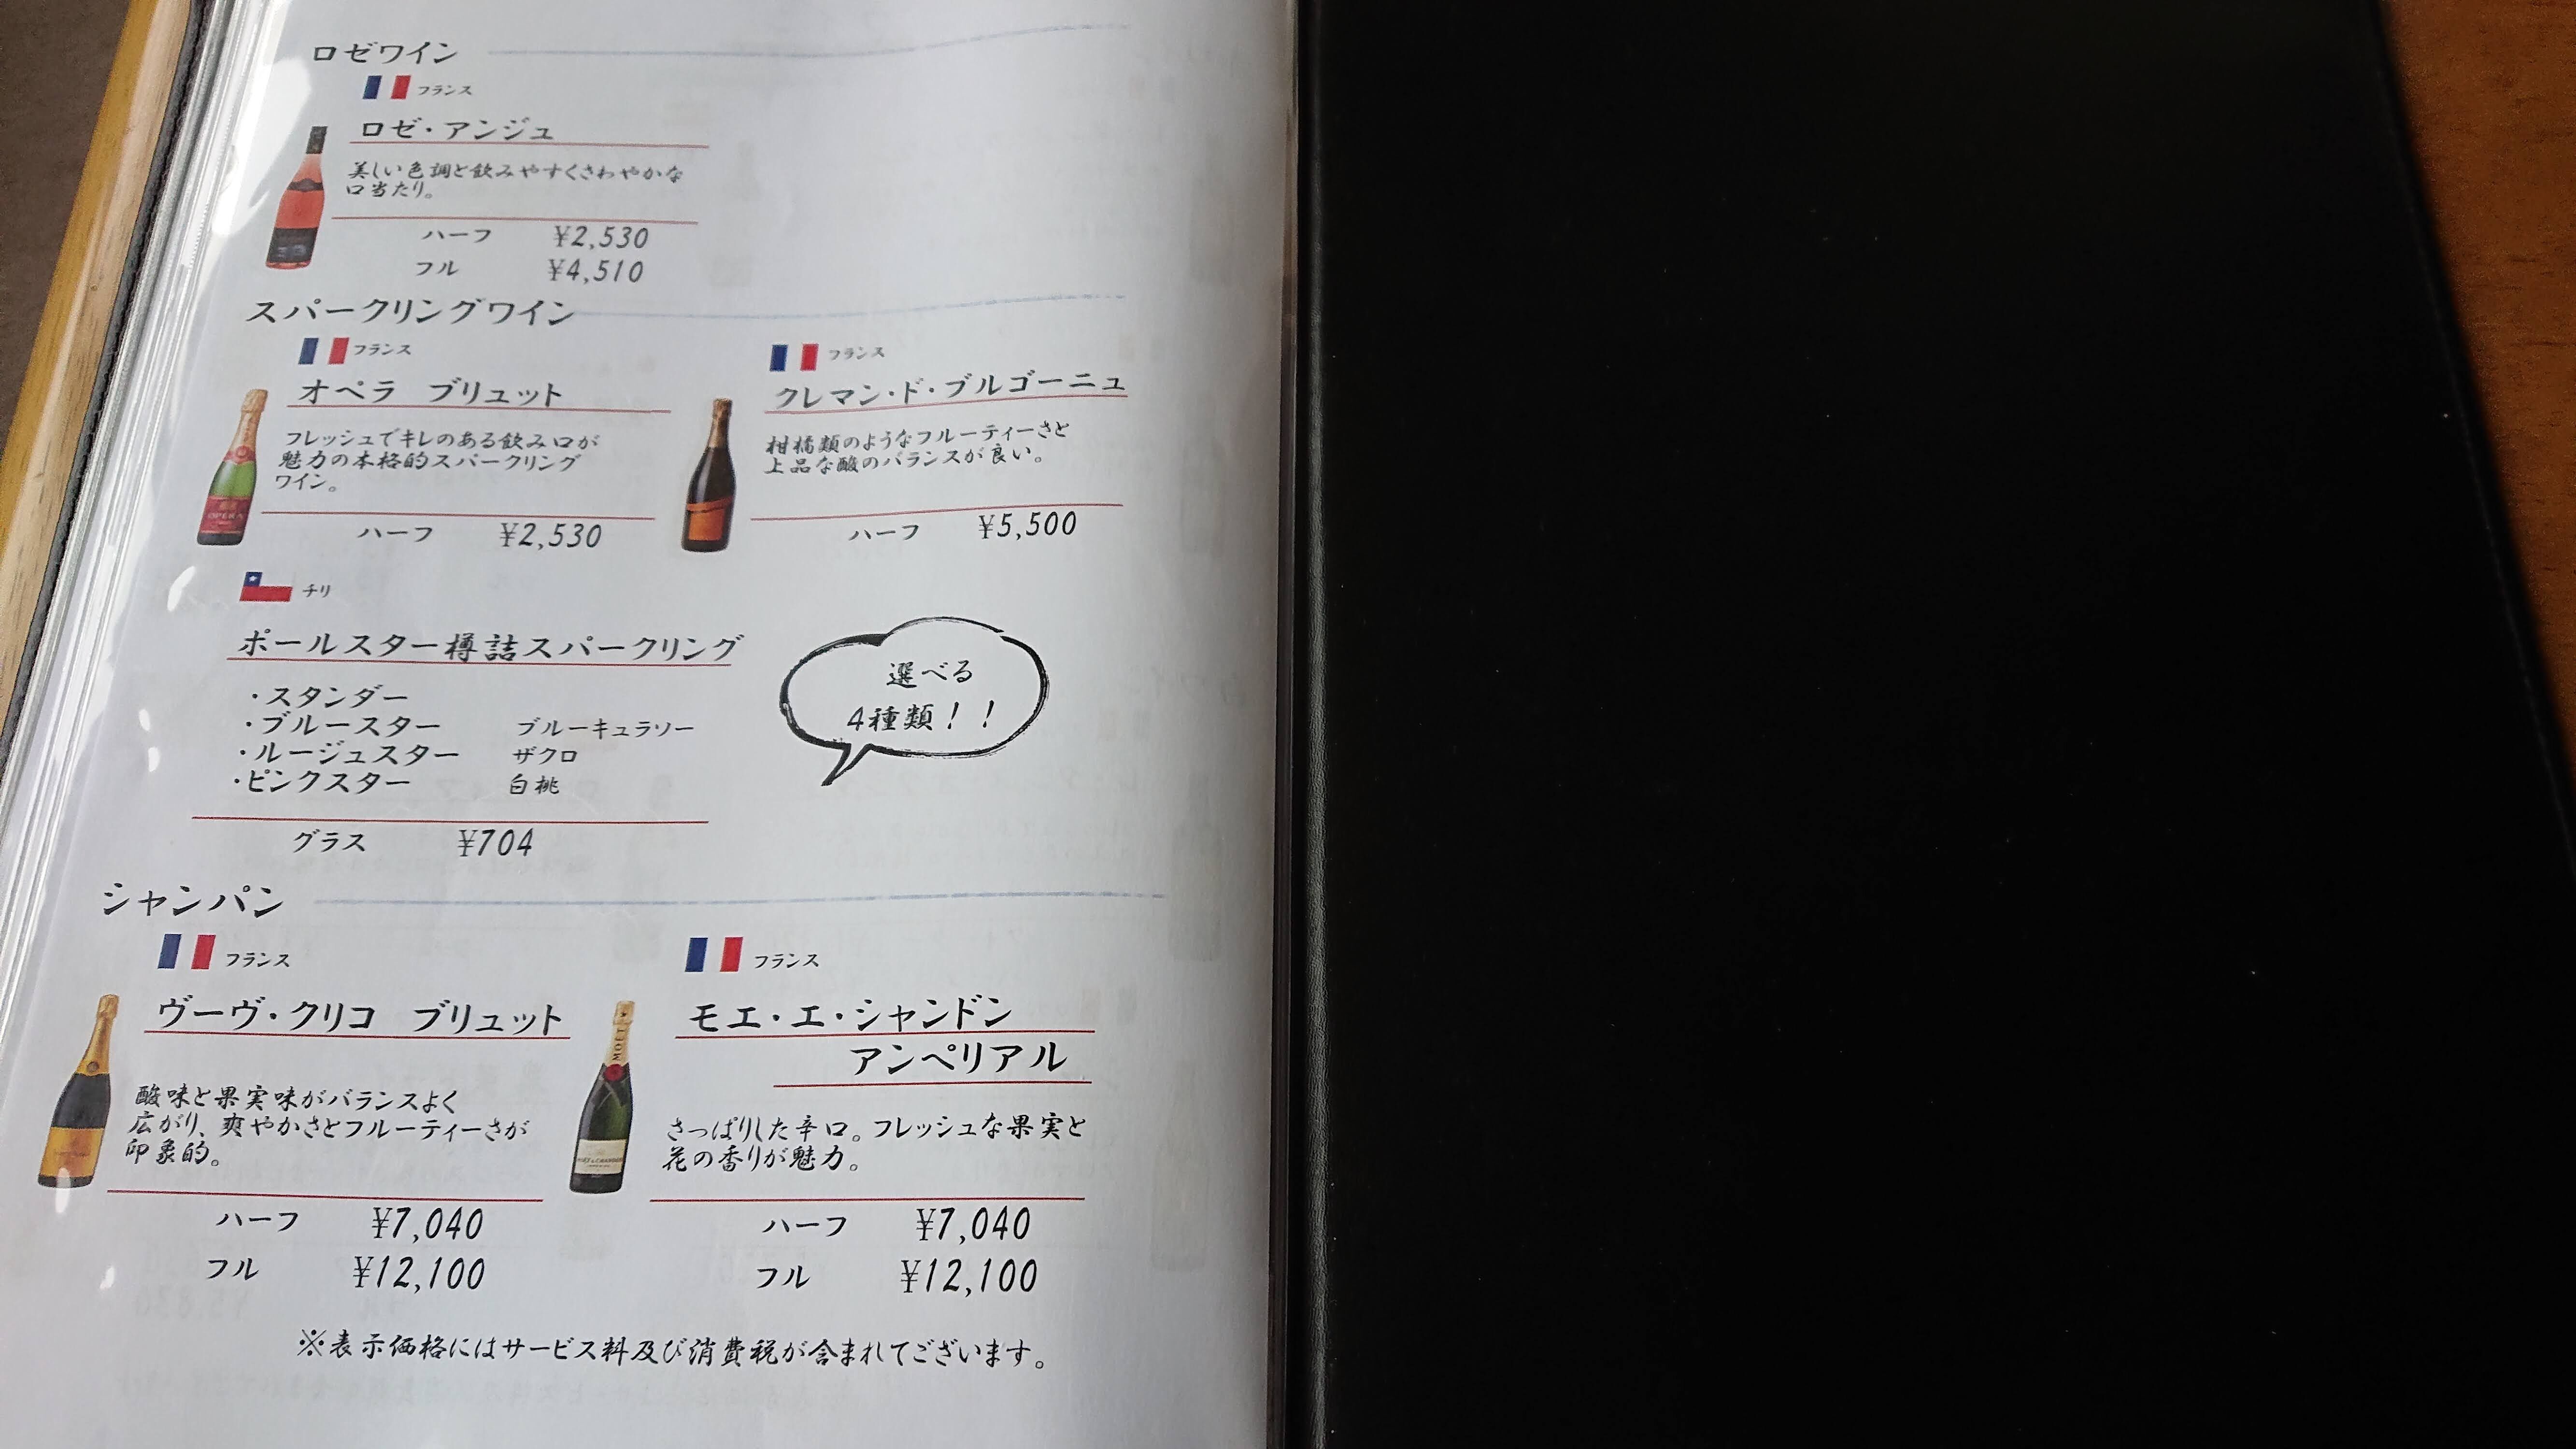 ロゼワイン
フランス
ロゼ・アンジュ
美しい色調と飲みやすくさわやかな
口当たり。
ハーフ ¥2,530
フル ¥4,510
スパークリングワイン
フランス
オペラ ブリュット
フレッシュでキレのある飲み口が
魅力の本格的スパークリング
ワイン。
ハーフ ¥2,530
OPERA
フランス
クレマン・ド・ブルゴーニュ
柑橘類のようなフルーティーさと
上品な酸のバランスが良い。
ハーフ ¥5,500
チリ
ポールスター樽詰スパークリング
・スタンダー
・ブルースター ブルーキュラソー
・ルージュスター ザクロ
・ピンクスター 白桃
グラス ¥704
選べる
4種類！！
シャンパン
フランス
ヴーヴ・クリコ ブリュット
酸味と果実味がバランスよく
広がり、爽やかさとフルーティーさが
印象的。
ハーフ ¥7,040
フル ¥12,100
フランス
モエ・エ・シャンドン
アンペリアル
さっぱりした辛口。フレッシュな果実と
花の香りが魅力。
ハーフ ¥7,040
フル ¥12,100
MOET
※表示価格にはサービス料及び消費税が含まれてございます。